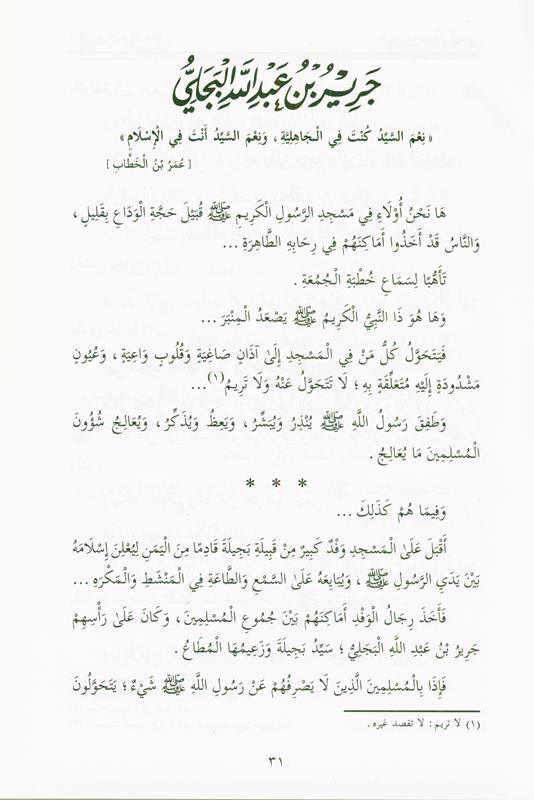 جَرِيْرُ بْنُ عَبْدِ اللَّهِ الْبَجَلِيُّ
« نِعْمَ السَّيِّدُ كُنْتَ فِي الْجَاهِلِيَّةِ ، وَنِعْمَ السَّيِّدُ أَنْتَ فِي الْإِسْلَامِ »
[ عُمَرُ بْنُ الْخَطَّابِ ]
هَا نَحْنُ أُوْلَاءِ فِي مَسْجِدِ الرَّسُولِ الْكَرِيمِ ﷺ قُبَيْلَ حَجَّةِ الْوَدَاعِ بِقَلِيلٍ ،
وَالنَّاسُ قَدْ أَخَذُوا أَمَاكِنَهُمْ فِي رِحَابِهِ الطَّاهِرَةِ ...
تَأَهُّبًا لِسَمَاعِ خُطْبَةِ الْجُمُعَةِ .
وَهَا هُوَ ذَا النَّبِيُّ الْكَرِيمُ ﷺ يَصْعَدُ الْمِنْبَرَ ...
فَيَتَحَوَّلُ كُلُّ مَنْ فِي الْمَسْجِدِ إِلَىٰ آذَانٍ صَاغِيَةٍ وَقُلُوبٍ وَاعِيَةٍ ، وَعُيُونٍ
مَشْدُودَةٍ إِلَيْهِ مُتَعَلِّقَةٍ بِهِ ؛ لَا تَتَحَوَّلُ عَنْهُ وَلَا تَرِيمُ(١) ...
وَطَفِقَ رَسُولُ اللَّهِ ﷺ يُنْذِرُ وَيُبَشِّرُ ، وَيَعِظُ وَيُذَكِّرُ ، وَيُعَالِجُ شُؤُونَ
الْمُسْلِمِينَ مَا يُعَالِجُ .
* * *
وَفِيمَا هُمْ كَذَلِكَ ...
أَقْبَلَ عَلَىٰ الْمَسْجِدِ وَفْدٌ كَبِيرٌ مِنْ قَبِيلَةِ بَجِيلَةَ قَادِمًا مِنَ الْيَمَنِ لِيُعْلِنَ إِسْلَامَهُ
بَيْنَ يَدَيِ الرَّسُولِ ﷺ ، وَيُبَايِعَهُ عَلَىٰ السَّمْعِ وَالطَّاعَةِ فِي الْمَنْشَطِ وَالْمَكْرَهِ ...
فَأَخَذَ رِجَالُ الْوَفْدِ أَمَاكِنَهُمْ بَيْنَ جُمُوعِ الْمُسْلِمِينَ ، وَكَانَ عَلَىٰ رَأْسِهِمْ
جَرِيرُ بْنُ عَبْدِ اللَّهِ الْبَجَلِيُّ ؛ سَيِّدُ بَجِيلَةَ وَزَعِيمُهَا الْمُطَاعُ .
فَإِذَا بِالْمُسْلِمِينَ الَّذِينَ لَا يَصْرِفُهُمْ عَنْ رَسُولِ اللَّهِ ﷺ شَيْءٌ ؛ يَتَحَوَّلُونَ
(١) لا تريم : لا تقصد غيره .
٣١